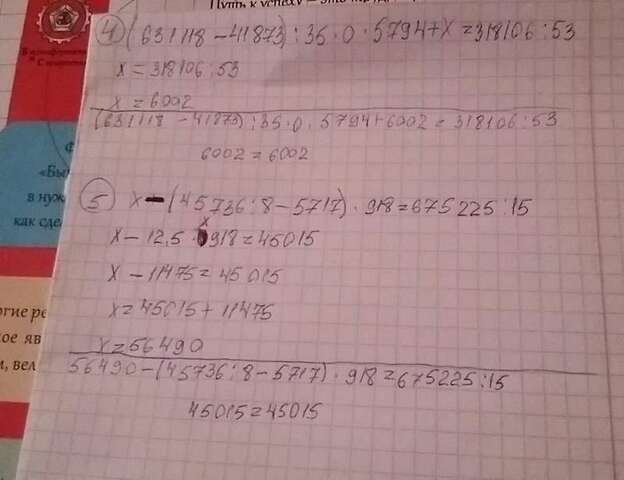 Путь к успеху — это
4) (631118 - 41873) : 35 · 0 · 5794 + x = 318106 : 53
x = 318106 : 53
x = 6002
(631118 - 41873) : 35 · 0 · 5794 + 6002 = 318106 : 53
6002 = 6002
5) x - (45736 : 8 - 5717) · 918 = 675225 : 15
x - 12,5 · 918 = 45015
x
x - 11475 = 45015
x = 45015 + 11475
x = 56490
56490 - (45736 : 8 - 5717) · 918 = 675225 : 15
45015 = 45015
«Бы
в нуж
как сде
огие ре
ое яв
м, вел